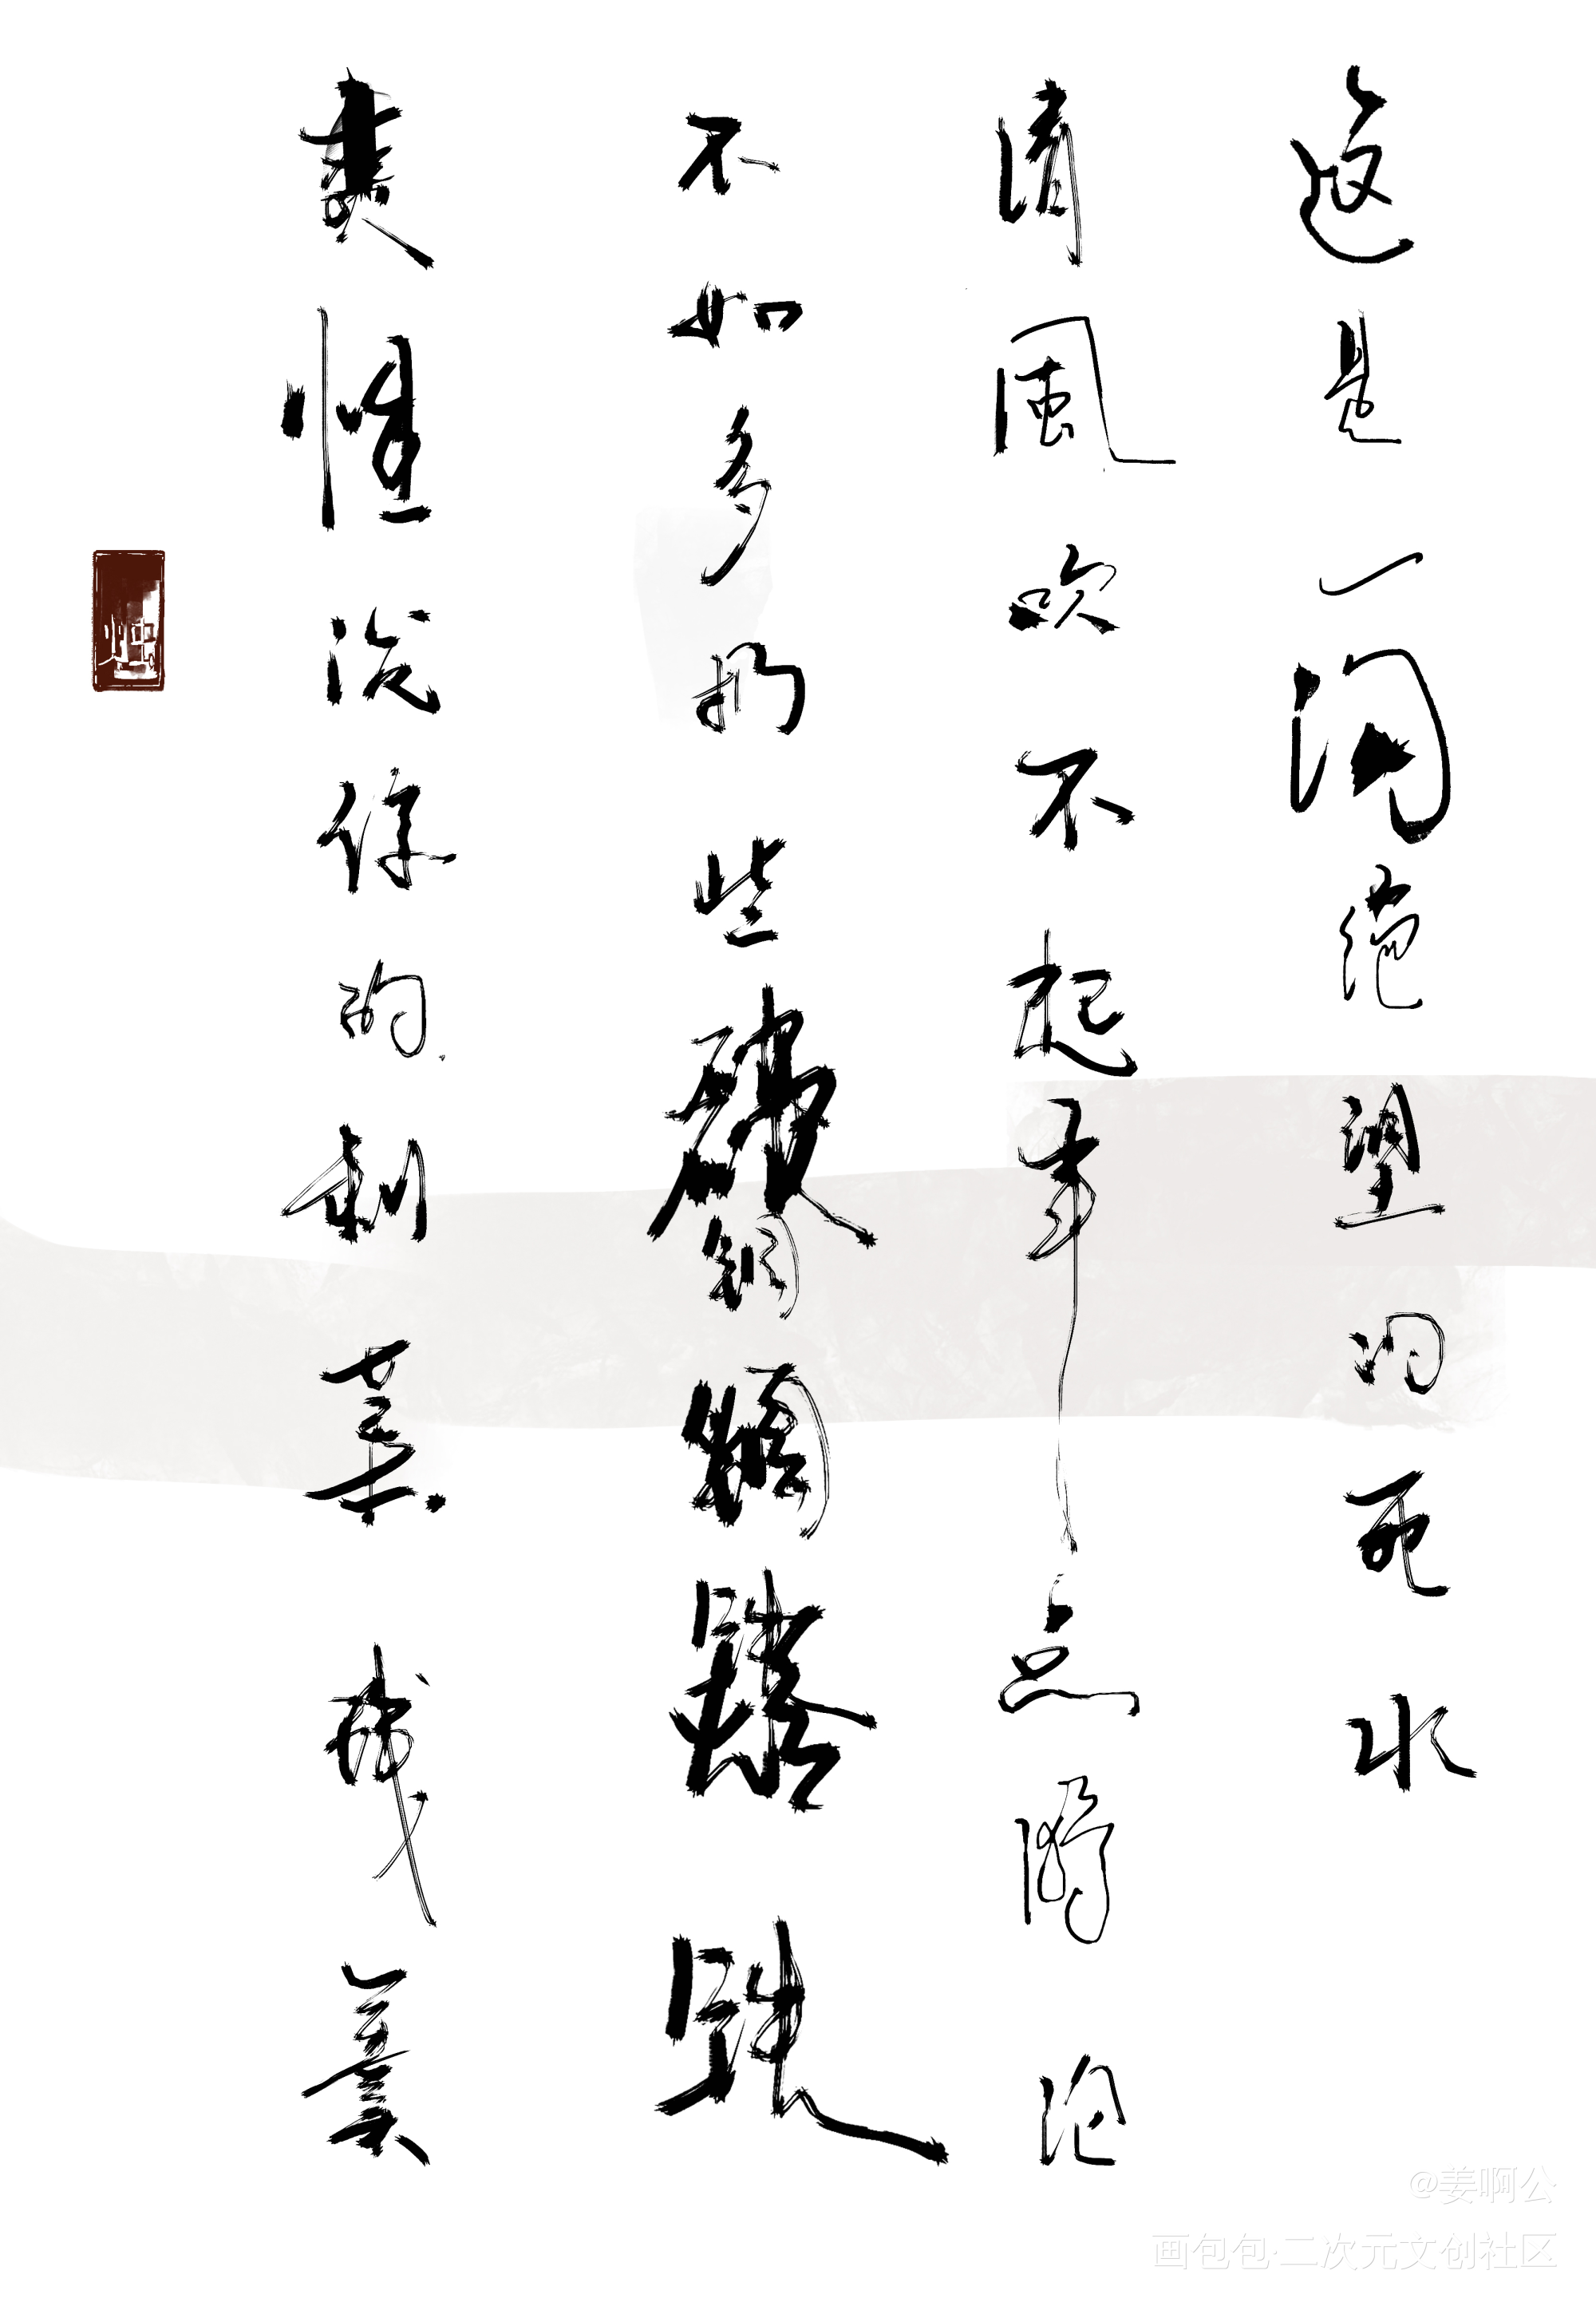 这是一沟绝望的死水
清風吹不起半点漪沦
不如多扔些破铜烂
爽性泼你的剩菜残羹
@姜啊公
画包包·二次元文创社区